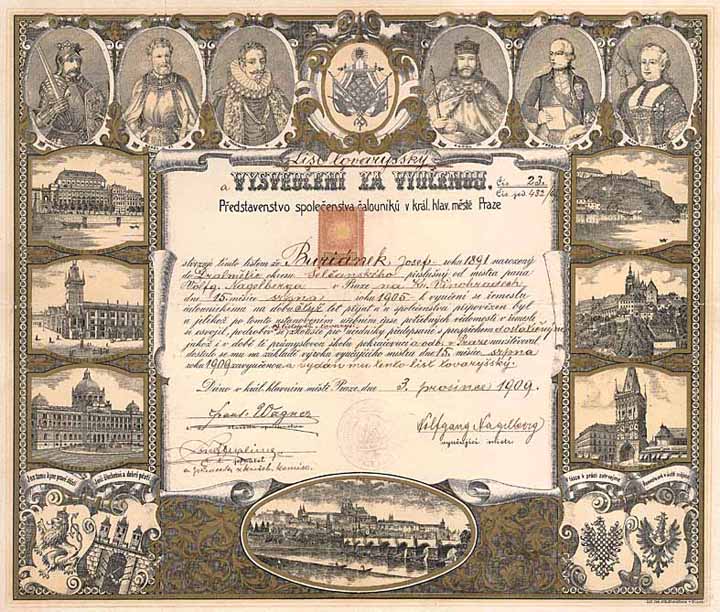 List tovaryšský
a VYSVĚDČENÍ ZA VYUČENOU.
Čís. 23.
Čís. jed. 432/
Představenstvo společenstva čalouníků v král. hlav. městě Praze
stvrzuje tímto listem že Buriánek Josef roku 1891 narozený
do okresu Selčanského příslušný od mistra pana
Wolfg. Nagelberga v Praze na Kr. Vinohradech
dne 15. měsíce srpna roku 1905 k vyučení se řemeslu
čalounickému na dobu čtyř let přijat a u společenstva připovězen byl
a jelikož po tomto ustanoveném učebním čase potřebných vědomostí v řemesle
si osvojil, podrobiv se zkoušce po učednicky předepsané s prospěchem
jakož i v době té průmyslovou školu pokračovací v Praze navštěvoval
dostalo se mu na základě výroku vyučujícího mistra dne 15. měsíce srpna
roku 1909 za vyučenou a vydán mu tento list tovaryšský.
Dáno v král. hlavním městě Praze, dne 3. prosince 1909.
Wagner
Wolfgang Nagelberg
vyučující mistr
a zkuš. komise.